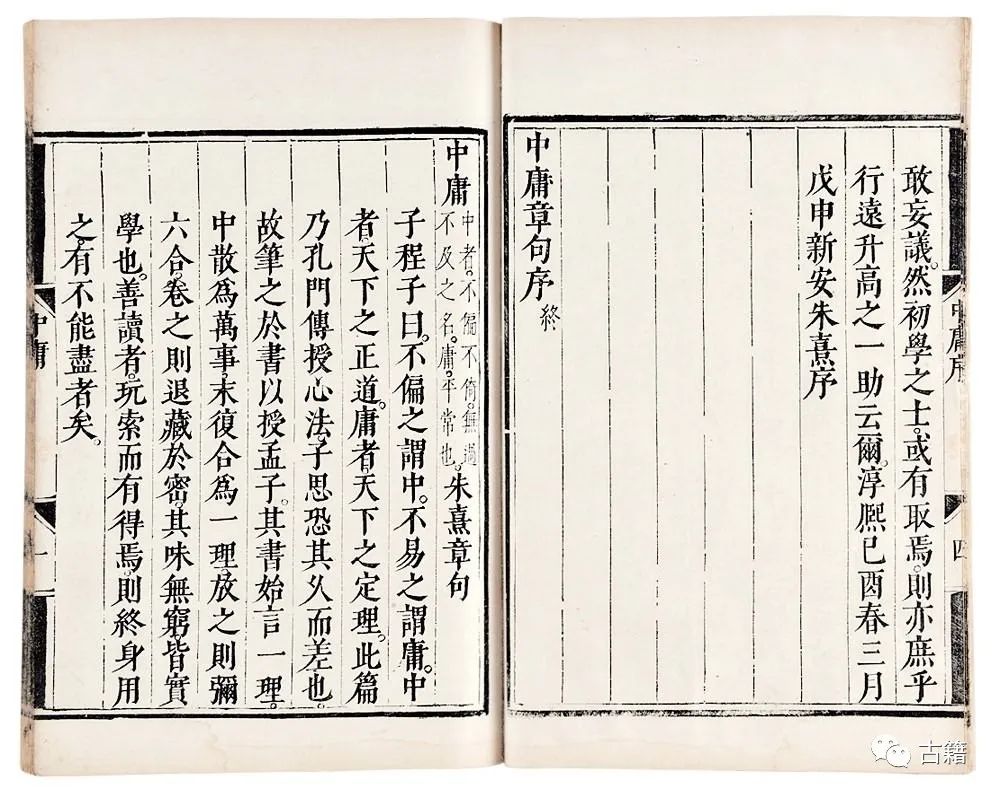 敢妄議。然初學之士。或有取焉。則亦庶乎
行遠升高之一助云爾。淳熈已酉春三月
戊申新安朱熹序
中庸章句序 終
中庸序
四
中庸 中者。不偏不倚。無過不及之名。庸。平常也。朱熹章句
子程子曰。不偏之謂中。不易之謂庸。中
者。天下之正道。庸者。天下之定理。此篇
乃孔門傳授心法。子思恐其久而差也。
故筆之於書以授孟子。其書始言一理。
中散爲萬事。末復合爲一理。放之則彌
六合。卷之則退藏於密。其味無窮。皆實
學也。善讀者。玩索而有得焉。則終身用
之。有不能盡者矣。
中庸
一
古籍